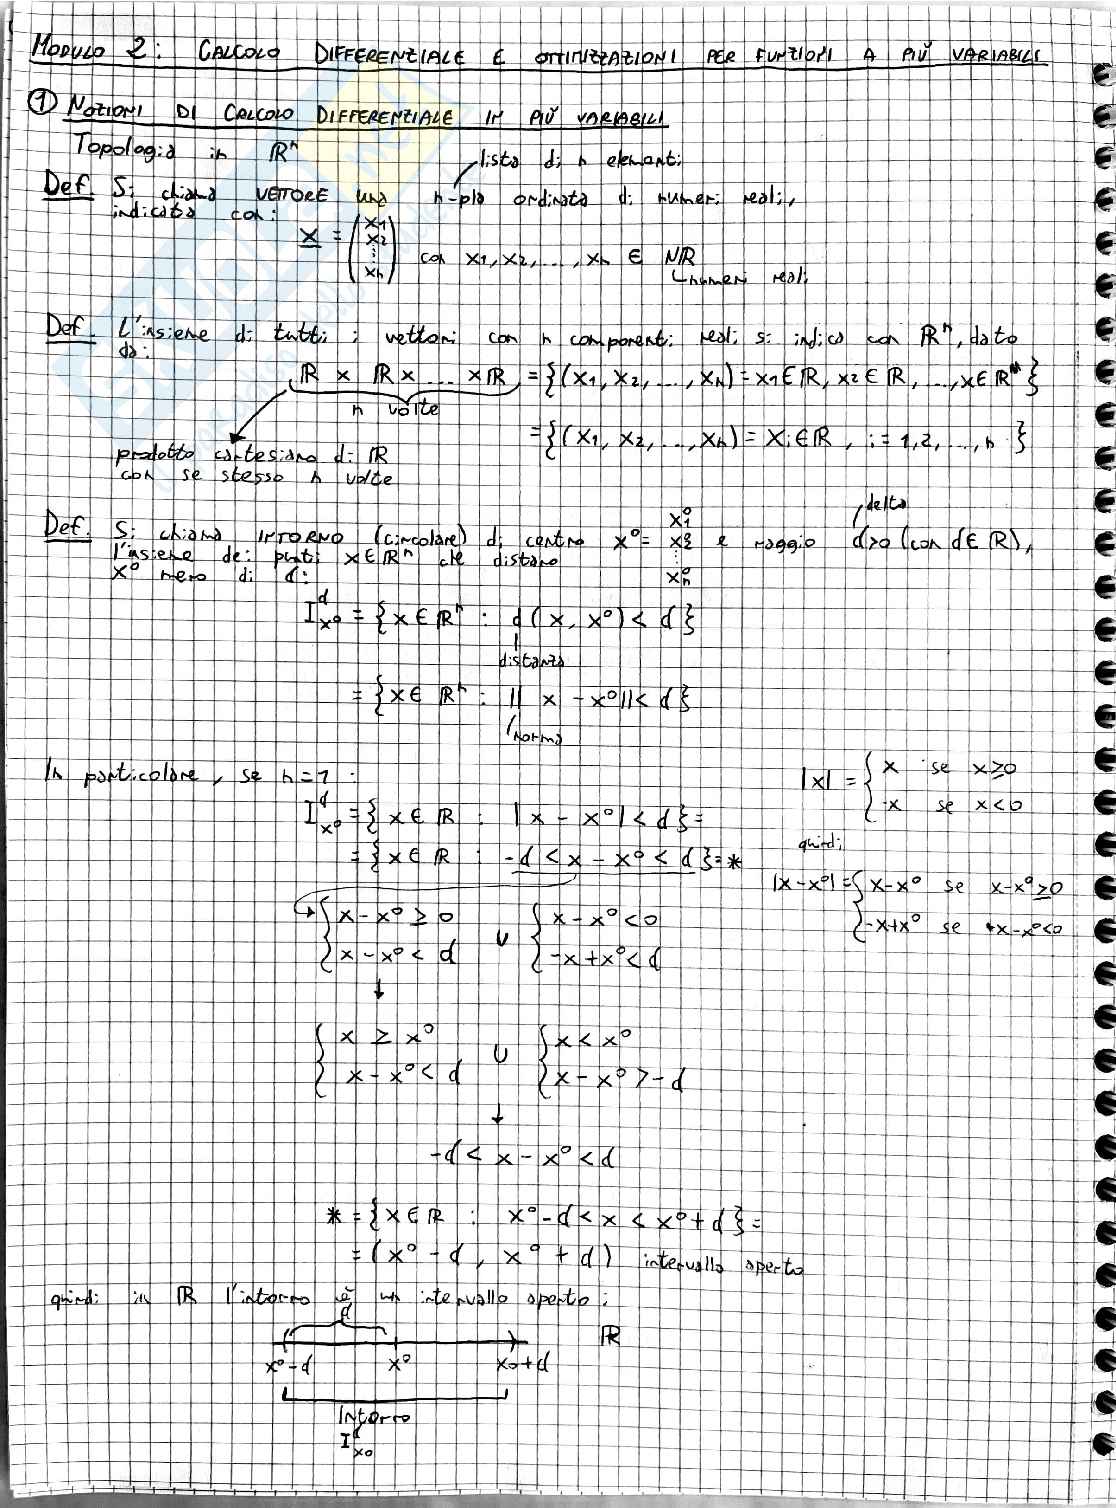 MODULO 2: CALCOLO DIFFERENZIALE E OTTIMIZZAZIONI PER FUNZIONI A PIÙ VARIABILI
① NOZIONI DI CALCOLO DIFFERENZIALE IN PIÙ VARIABILI
Topologia in ℝⁿ
lista di n elementi
Def. Si chiama VETTORE una n-pla ordinata di numeri reali,
indicata con:
x = (x1 x2 ... xn) con x1, x2, ..., xn ∈ ℝ
numeri reali
Def. L'insieme di tutti i vettori con n componenti reali si indica con ℝⁿ, dato
da:
ℝ × ℝ × ... × ℝ = {(x1, x2, ..., xn) = x1 ∈ ℝ, x2 ∈ ℝ, ..., x ∈ ℝ}
n volte
= {(x1, x2, ..., xn) = xi ∈ ℝ, i = 1,2, ..., n }
prodotto cartesiano di ℝ
con se stesso n volte
delta
Def. Si chiama INTORNO (circolare) di centro x⁰ = x₁⁰ x₂⁰ ... xₙ⁰ e raggio d>0 (con d ∈ ℝ),
l'insieme dei punti x ∈ ℝⁿ che distano
x⁰ meno di d:
I^d_x⁰ = {x ∈ ℝⁿ : d(x, x⁰) < d}
distanza
= {x ∈ ℝⁿ : || x - x⁰|| < d}
norma
In particolare, se n=1 :
|x| = { x se x ≥ 0
-x se x < 0
I^d_x⁰ = { x ∈ ℝ : |x - x⁰| < d} =
= {x ∈ ℝ : -d < x - x⁰ < d} = *
quindi
|x-x⁰| = { x-x⁰ se x-x⁰ ≥ 0
-x+x⁰ se x-x⁰<0
{ x - x⁰ ≥ 0 ∪ { x - x⁰ < 0
x - x⁰ < d -x + x⁰ < d
↓
{ x ≥ x⁰ ∪ { x < x⁰
x - x⁰ < d x - x⁰ > -d
↓
-d < x - x⁰ < d
* = {x ∈ ℝ : x⁰-d < x < x⁰+d} =
= (x⁰ - d, x⁰ + d) intervallo aperto
quindi in ℝ l'intorno è un intervallo aperto:
d
ℝ
x⁰-d x⁰ x0+d
Intorno
I^d_x0